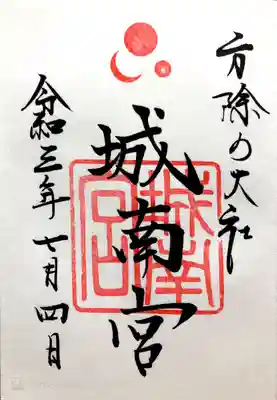 方除の大社
城南宮
城南宮
令和三年七月四日